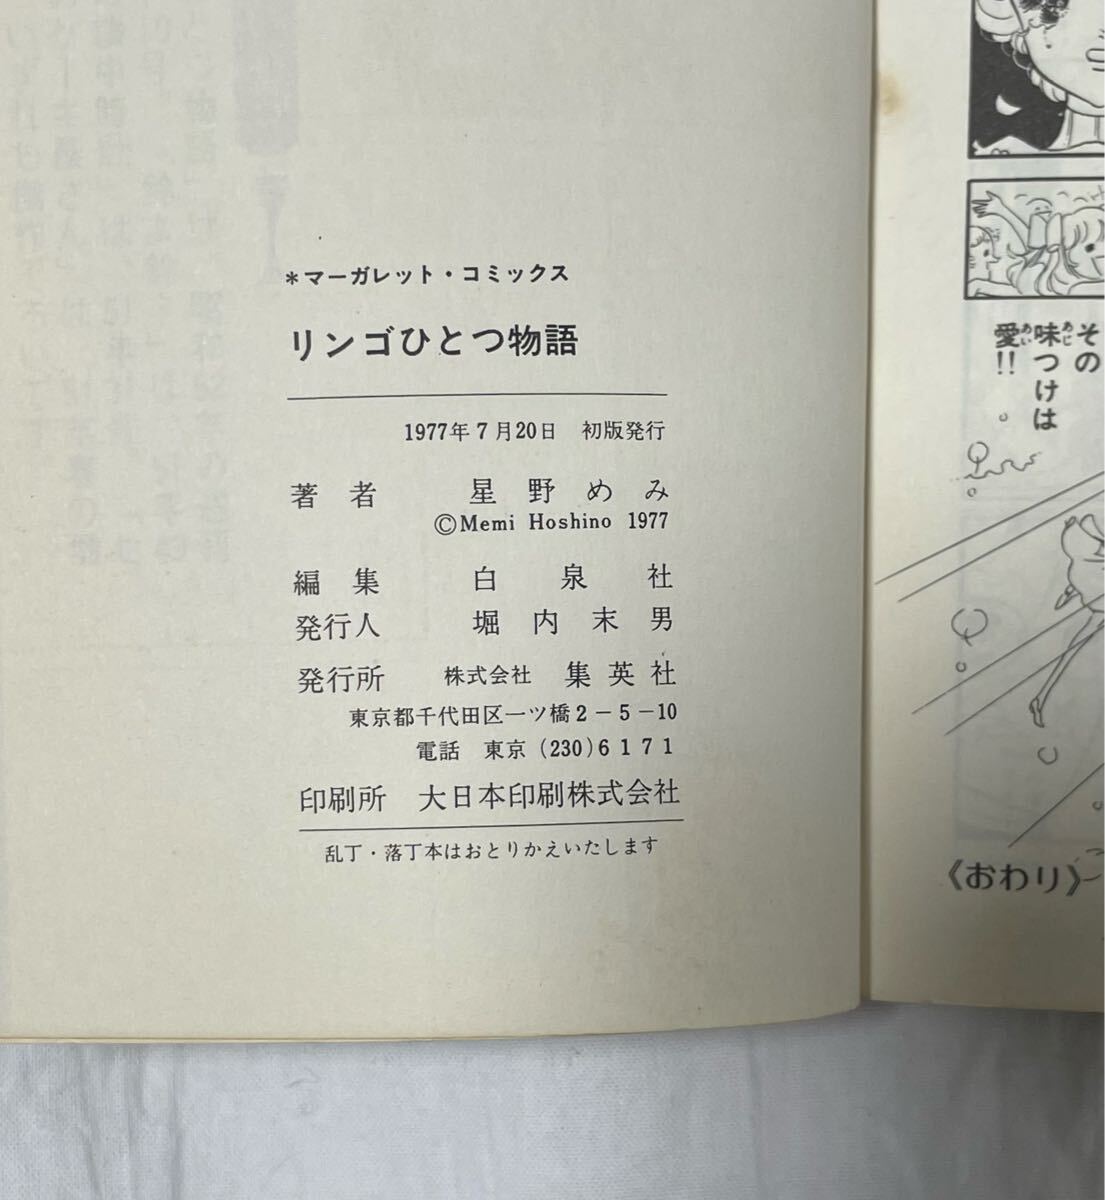 ＊マーガレット・コミックス
リンゴひとつ物語
1977年7月20日 初版発行
著者 星野めみ
©Memi Hoshino 1977
編集 白泉社
発行人 堀内末男
発行所 株式会社 集英社
東京都千代田区一ツ橋2-5-10
電話 東京(230)6171
印刷所 大日本印刷株式会社
乱丁・落丁本はおとりかえいたします
その
味つけは
あじ
愛!!
あい
《おわり》